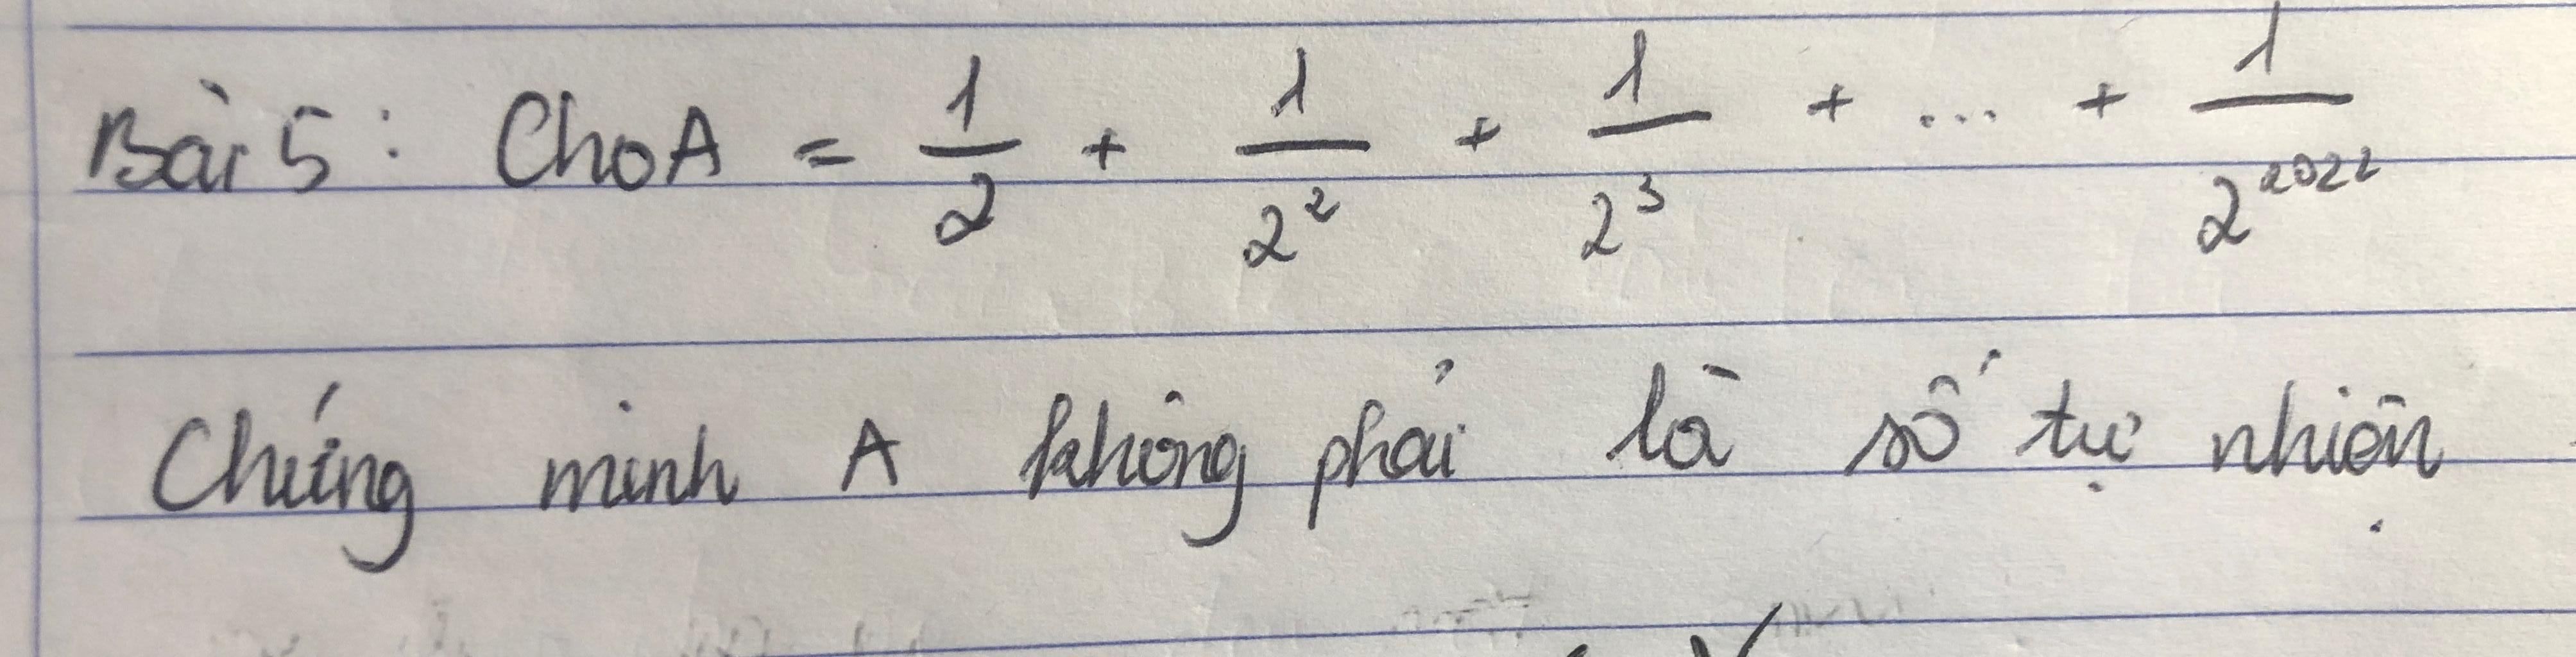 Bài 5 : Cho A = 1/2 + 1/2² + 1/2³ + ... + 1/2²⁰²²
Chứng minh A không phải là số tự nhiên.